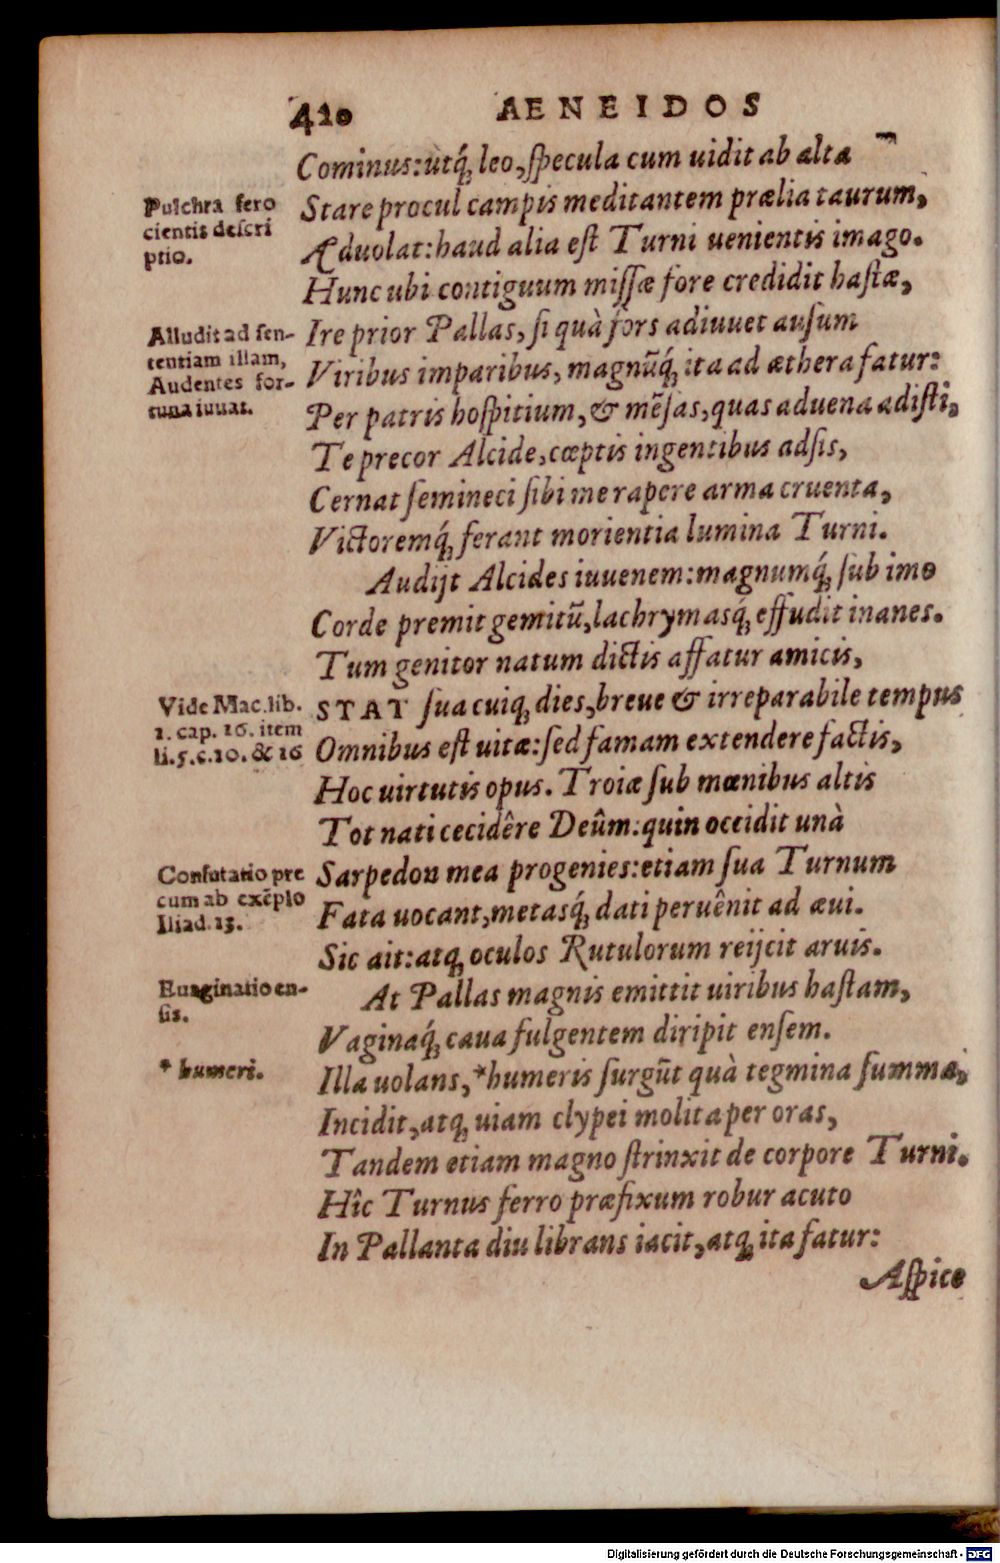 420 AENEIDOS
Cominus: utq́; leo, ſpecula cum uidit ab alta
Pulchra fero
cientis deſcri
ptio.
Stare procul campis meditantem prælia taurum,
Aduolat: haud alia eſt Turni uenientis imago.
Hunc ubi contiguum miſſæ fore credidit haſtæ,
Alludit ad ſen-
tentiam illam,
Audentes for-
tuna iuuat.
Ire prior Pallas, ſi quà fors adiuuet auſum
Viribus imparibus, magnũq́; ita ad æthera fatur:
Per patris hoſpitium, & mẽſas, quas aduena adiſti,
Te precor Alcide, cœptis ingentibus adſis,
Cernat ſemineci ſibi me rapere arma cruenta,
Victoremq́; ferant morientia lumina Turni.
Audijt Alcides iuuenem: magnumq́; ſub imo
Corde premit gemitũ, lachrymasq́; effudit inanes.
Tum genitor natum dictis affatur amicis,
Vide Mac. lib.
1. cap. 16. item
li. 5. c. 10. & 16
STAT ſua cuiq; dies, breue & irreparabile tempus
Omnibus eſt uitæ: ſed famam extendere factis,
Hoc uirtutis opus. Troiæ ſub mœnibus altis
Tot nati cecidêre Deûm: quin occidit unà
Confutatio pre
cum ab exẽplo
Iliad. 15.
Sarpedon mea progenies: etiam ſua Turnum
Fata uocant, metasq́; dati peruênit ad æui.
Sic ait: atq; oculos Rutulorum reijcit aruis.
Euaginatio en-
ſis.
At Pallas magnis emittit uiribus haſtam,
Vaginaq́; caua fulgentem diripit enſem.
* humeri.
Illa uolans, *humeris ſurgũt quà tegmina ſumma,
Incidit, atq; uiam clypei molita per oras,
Tandem etiam magno ſtrinxit de corpore Turni.
Hîc Turnus ferro præfixum robur acuto
In Pallanta diu librans iacit, atq; ita fatur:
Aſpice
Digitalisierung gefördert durch die Deutsche Forschungsgemeinschaft - DFG